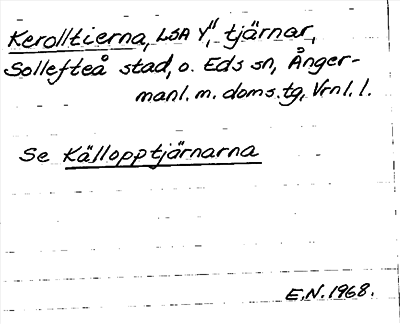 Kerolltierna, LSA Y", tjärnar,
Sollefteå stad, o. Eds sn, Ånger-
manl. m. doms.tg, Vrnl. l.
Se Källopptjärnarna
E.N. 1968.